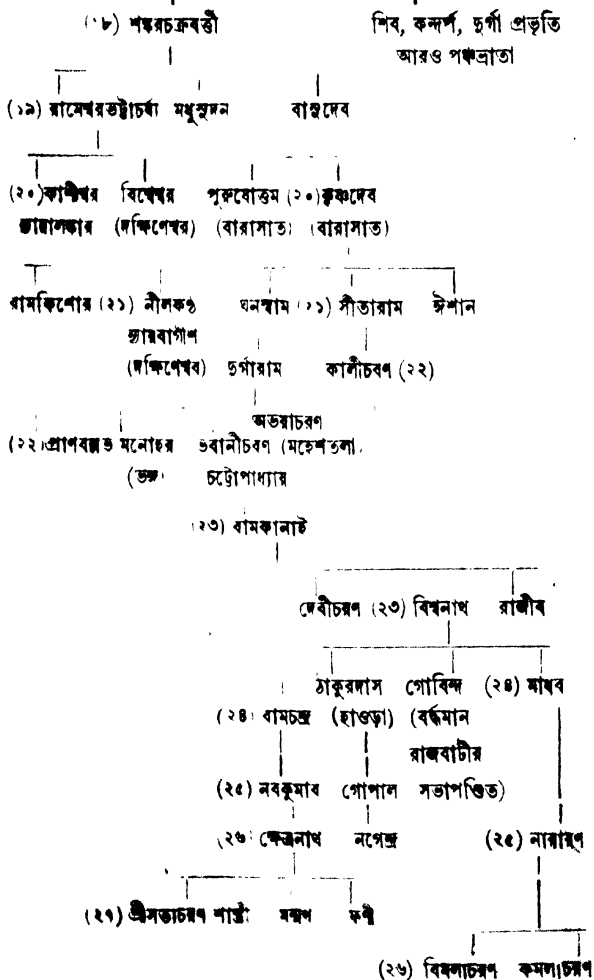 (১৮) শঙ্করচক্রবর্ত্তী শিব, কন্দর্প, দুর্গা প্রভৃতি
আরও পঞ্চভ্রাতা
(১৯) রামেশ্বরভট্টাচার্য্য মধুসূদন বাসুদেব
(২০) কাশীশ্বর বিশ্বেশ্বর পুরুষোত্তম (২০) কৃষ্ণদেব
ন্যায়ালঙ্কার (দক্ষিণেশ্বর) (বারাসাত) (বারাসাত)
রামকিশোর (২১) নীলকণ্ঠ ঘনশ্যাম (২১) সীতারাম ঈশান
ন্যায়বাগীশ
(দক্ষিণেশ্বর) দুর্গারাম কালীচরণ (২২)
অভয়াচরণ
(২২) প্রাণবল্লভ মনোহর ভবানীচরণ (মহেশতলা)
(ভঙ্গ) চট্টোপাধ্যায়
(২৩) রামকানাই
দেবীচরণ (২৩) বিশ্বনাথ রাজীব
ঠাকুরদাস গোবিন্দ (২৪) মাধব
(২৪) রামচন্দ্র (হাওড়া) (বর্দ্ধমান
রাজবাটীর
(২৫) নবকুমার গোপাল সভাপণ্ডিত)
(২৬) ক্ষেত্রনাথ নগেন্দ্র (২৫) নারায়ণ
(২৭) শ্রীসত্যচরণ শাস্ত্রী মন্মথ ফণী
(২৬) বিমলাচরণ কমলাচরণ